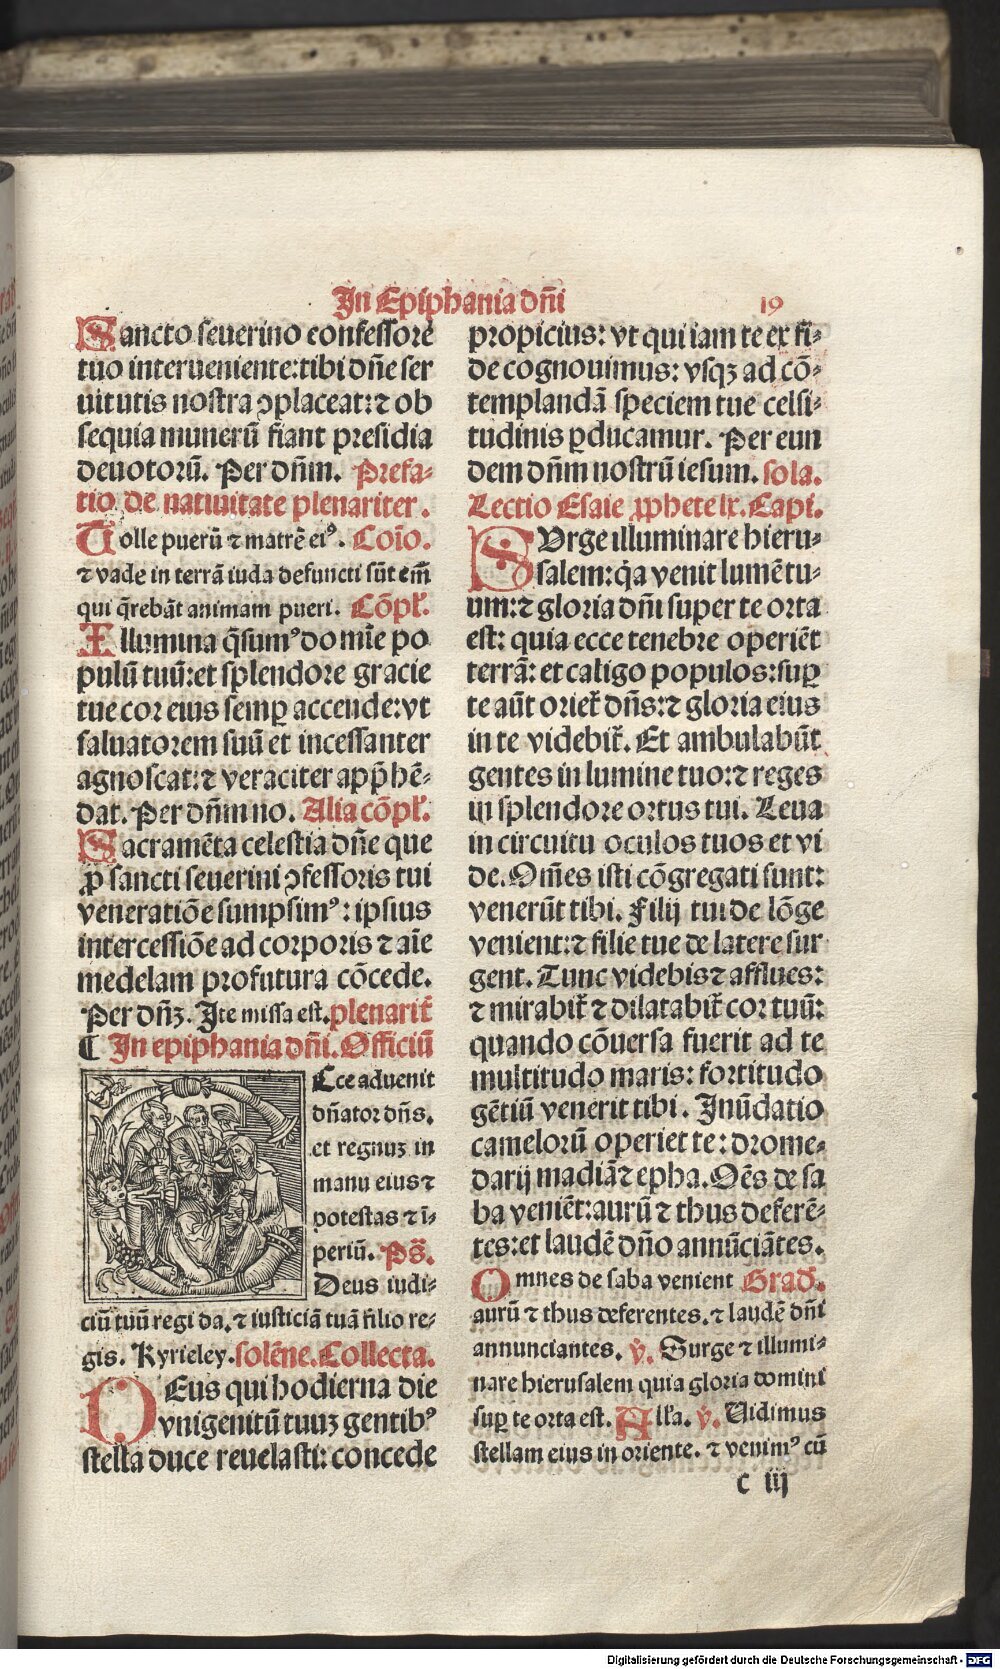 In Epiphania dñi
19
Sancto seuerino confessore
tuo interueniente: tibi dñe ser
uitutis nostra ꝯplaceat: ⁊ ob
sequia munerũ fiant presidia
deuotorũ. Per dñm. Prefa-
tio de natiuitate plenariter.
Tolle puerũ ⁊ matrẽ eiꝰ. Cõio.
⁊ vade in terrã iuda defuncti sũt em̃
qui q̃rebãt animam pueri. Cõpꝉ.
Illumina q̃sumꝰ domĩe po
pulũ tuũ: et splendore gracie
tue cor eius semꝑ accende: vt
saluatorem suũ et incessanter
agnoscat: ⁊ veraciter app̃hẽ-
dat. Per dñm no. Alia cõpꝉ.
Sacramẽta celestia dñe que
ꝓ sancti seuerini ꝯfessoris tui
veneratiõe sumpsimꝰ: ipsius
intercessiõe ad corporis ⁊ aĩe
medelam profutura cõcede.
Per dñꝫ. Ite missa est. plenarit̃
¶ In epiphania dñi. Officiũ
Ecce aduenit
dñator dñs.
et regnuꝫ in
manu eius ⁊
potestas ⁊ ĩ-
periũ. Ps̃.
Deus iudi-
ciũ tuũ regi da. ⁊ iusticiã tuã filio re-
gis. Kyrieley. solẽne. Collecta.
DEus qui hodierna die
vnigenitũ tuuꝫ gentibꝰ
stella duce reuelasti: concede
propicius: vt qui iam te ex fi-
de cognouimus: vsqꝫ ad cõ-
templandã speciem tue celsi-
tudinis ꝑducamur. Per eun
dem dñm nostrũ iesum. sola.
Lectio Esaie ꝓphete lx. Capi.
SVrge illuminare hieru-
salem: q̃a venit lumẽ tu-
um: ⁊ gloria dñi super te orta
est: quia ecce tenebre operiẽt
terrã: et caligo populos: suꝑ
te aũt oriet̃ dñs: ⁊ gloria eius
in te videbit̃. Et ambulabũt
gentes in lumine tuo: ⁊ reges
in splendore ortus tui. Leua
in circuitu oculos tuos et vi
de. Om̃es isti cõgregati sunt:
venerũt tibi. Filij tui de lõge
venient: ⁊ filie tue de latere sur
gent. Tunc videbis ⁊ afflues:
⁊ mirabit̃ ⁊ dilatabit̃ cor tuũ:
quando cõuersa fuerit ad te
multitudo maris: fortitudo
gẽtiũ venerit tibi. Inũdatio
camelorũ operiet te: drome-
darij madiã ⁊ epha. Oẽs de sa
ba veniẽt: aurũ ⁊ thus deferẽ-
tes: et laudẽ dño annũciãtes.
Omnes de saba venient Grad̃.
aurũ ⁊ thus deferentes. ⁊ laudẽ dñi
annunciantes. ℣. Surge ⁊ illumi-
nare hierusalem quia gloria domini
suꝑ te orta est. Alꝉa. ℣. Uidimus
stellam eius in oriente. ⁊ venimꝰ cũ
c iij
Digitalisierung gefördert durch die Deutsche Forschungsgemeinschaft - DFG